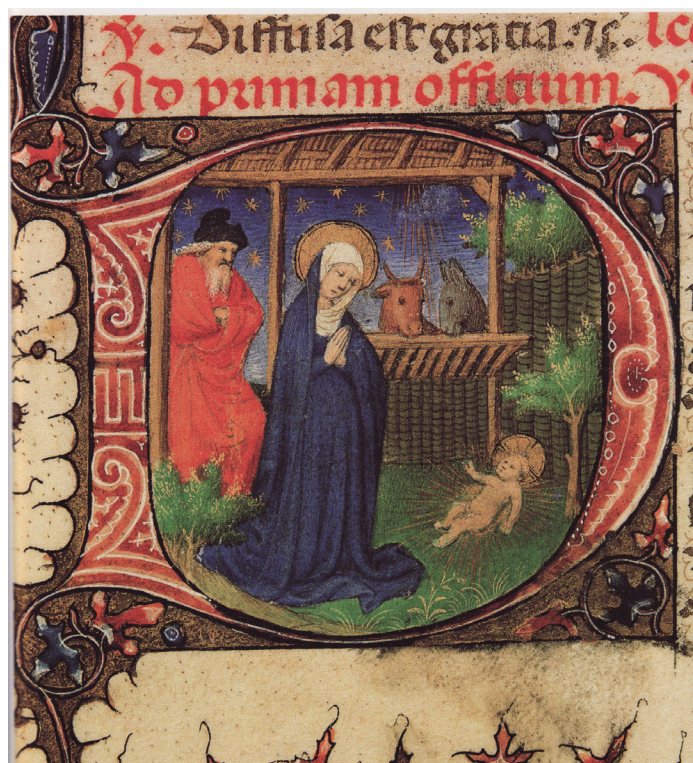 ℣. Diffusa est gracia. ℟.
Ad primam offitium.
D